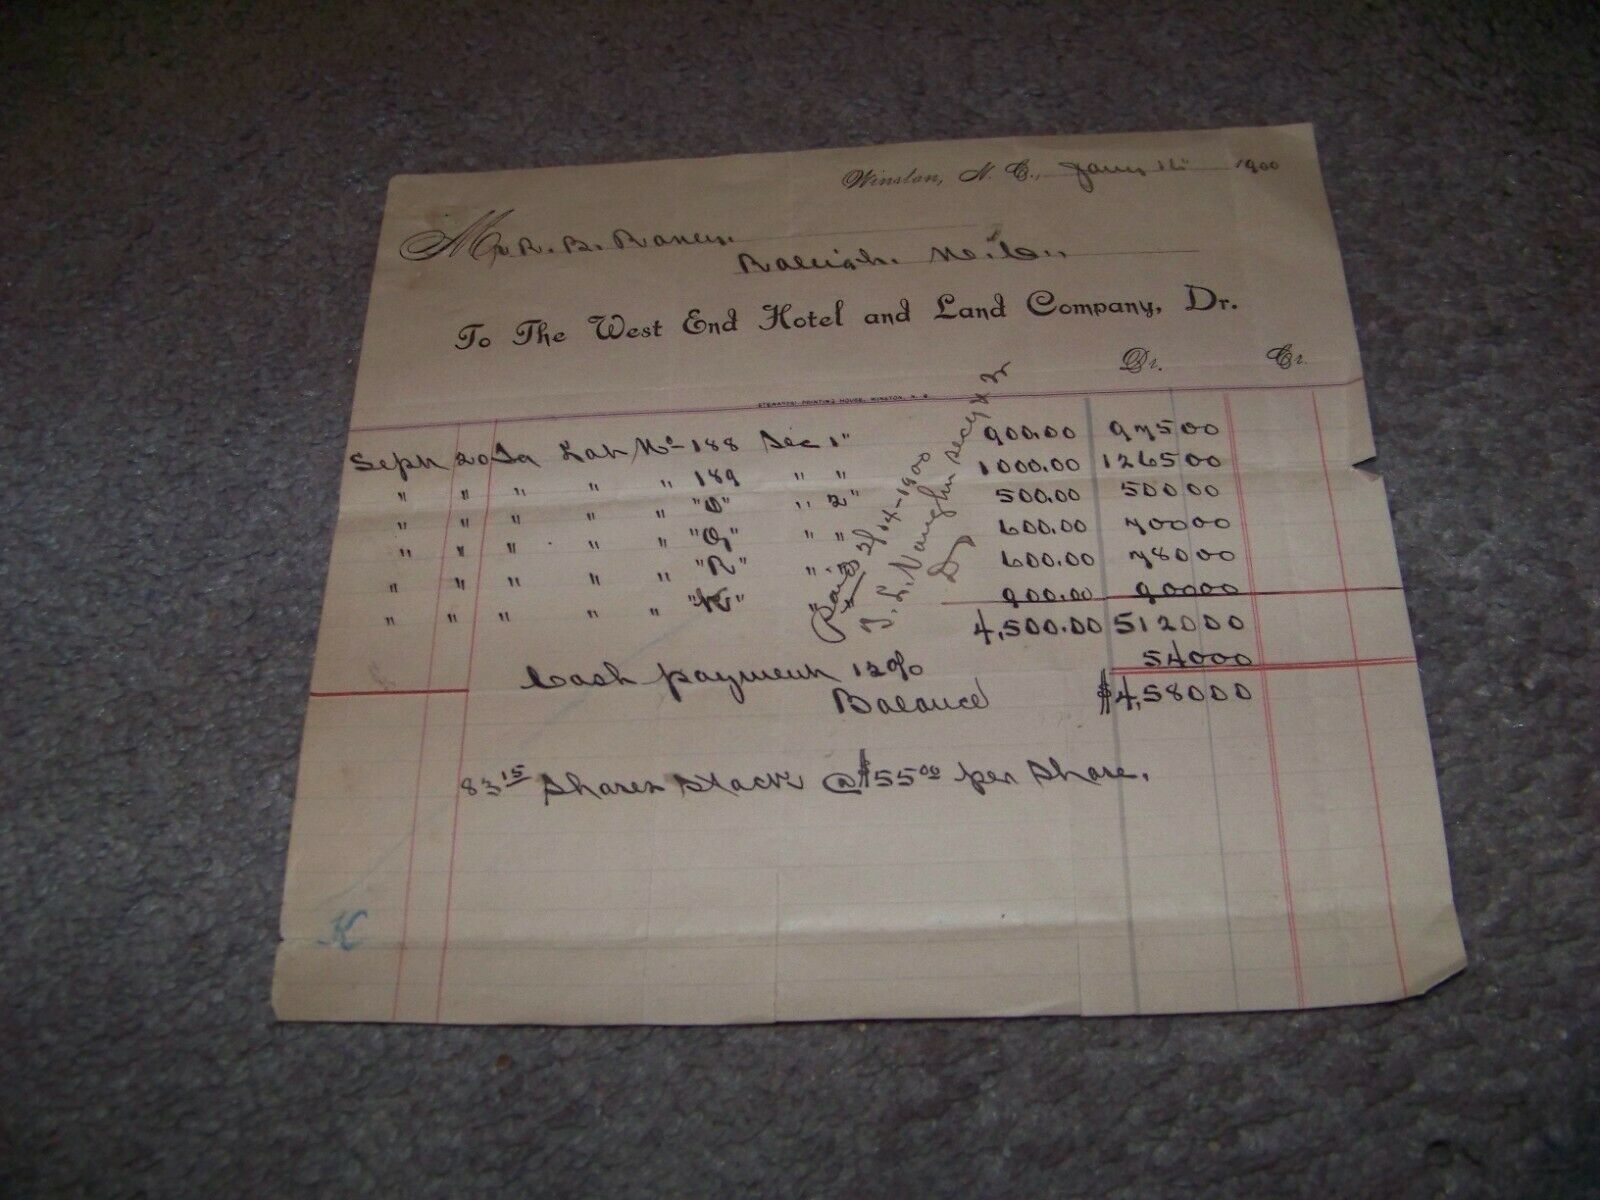 Winston, N. C., Jany 1900
Mr R. B. Raney.
Raleigh. N. C.,
To The West End Hotel and Land Company, Dr.
Dr. Cr.
STEWARTS' PRINTING HOUSE, WINSTON, N. C.
Sept 20 To Lot No 188 Sec 1" 900.00 975 00
" " " " " 189 " " 1000.00 1265 00
" " " " " "O" " 2" 500.00 500 00
" " " " " "Q" " " 600.00 700 00
" " " " " "R" " " 600.00 780 00
" " " " " "K" " " 900.00 900 00
4,500.00 5120 00
Cash payment 12% 540 00
Balance $4,580 00
Paid 2/14-1900
T. L. Vaughn Secy & Tr
83 15 Shares Stock @ $55 00 per Share.
K